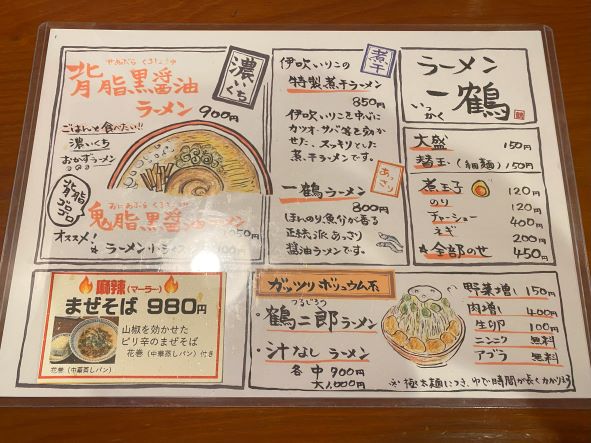 せあぶら くろしょうゆ
背脂黒醤油
ラーメン 900円
濃いくち
ごはんと食べたい!!
濃いくち
おかずラーメン
背脂
ゴロゴロ
オススメ!
おにあぶら くろしょうゆ
鬼脂黒醤油ラーメン
麻辣(マーラー)
まぜそば 980円
山椒を効かせた
ピリ辛のまぜそば
花巻(中華蒸しパン)付き
花巻(中華蒸しパン)
煮干
伊吹いりこの
特製煮干ラーメン
850円
伊吹いりこを中心に
カツオ・サバ等を効か
せた、スッキリとした
煮干ラーメンです。
あっさり
一鶴ラーメン
800円
ほんのり魚介が香る
正統派あっさり
醤油ラーメンです。
ガッツリボリュウム系
つるじろう
・鶴二郎ラーメン
・汁なしラーメン
各 中900円
大1,000円
ラーメン
一鶴
いっかく
大盛 150円
替玉(細麺)150円
煮玉子 120円
のり 120円
チャーシュー 400円
ねぎ 200円
★全部のせ 450円
野菜増し 150円
肉増 400円
生卵 100円
ニンニク 無料
アブラ 無料
※極太麺につき、ゆで時間が長くかかります